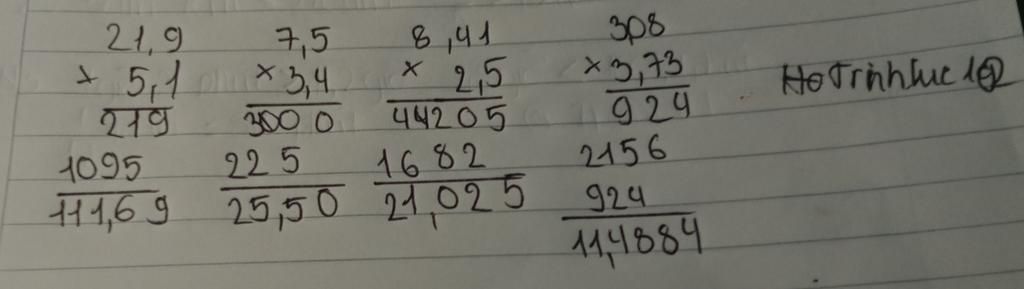 21,9 7,5 8,41 3,08
× 5,1 × 3,4 × 2,5 × 3,73
219 3000 44205 924
1095 225 1682 2156
111,69 25,50 21,025 924
11,4884